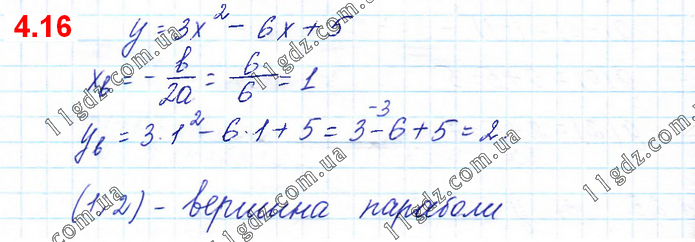 4.16
y = 3x² - 6x + 5
xв = - b/2a = 6/6 = 1
-3
yв = 3·1² - 6·1 + 5 = 3 - 6 + 5 = 2
(1; 2) - вершина параболи
11gdz.com.ua
11gdz.com.ua
11gdz.com.ua
11gdz.com.ua
11gdz.com.ua